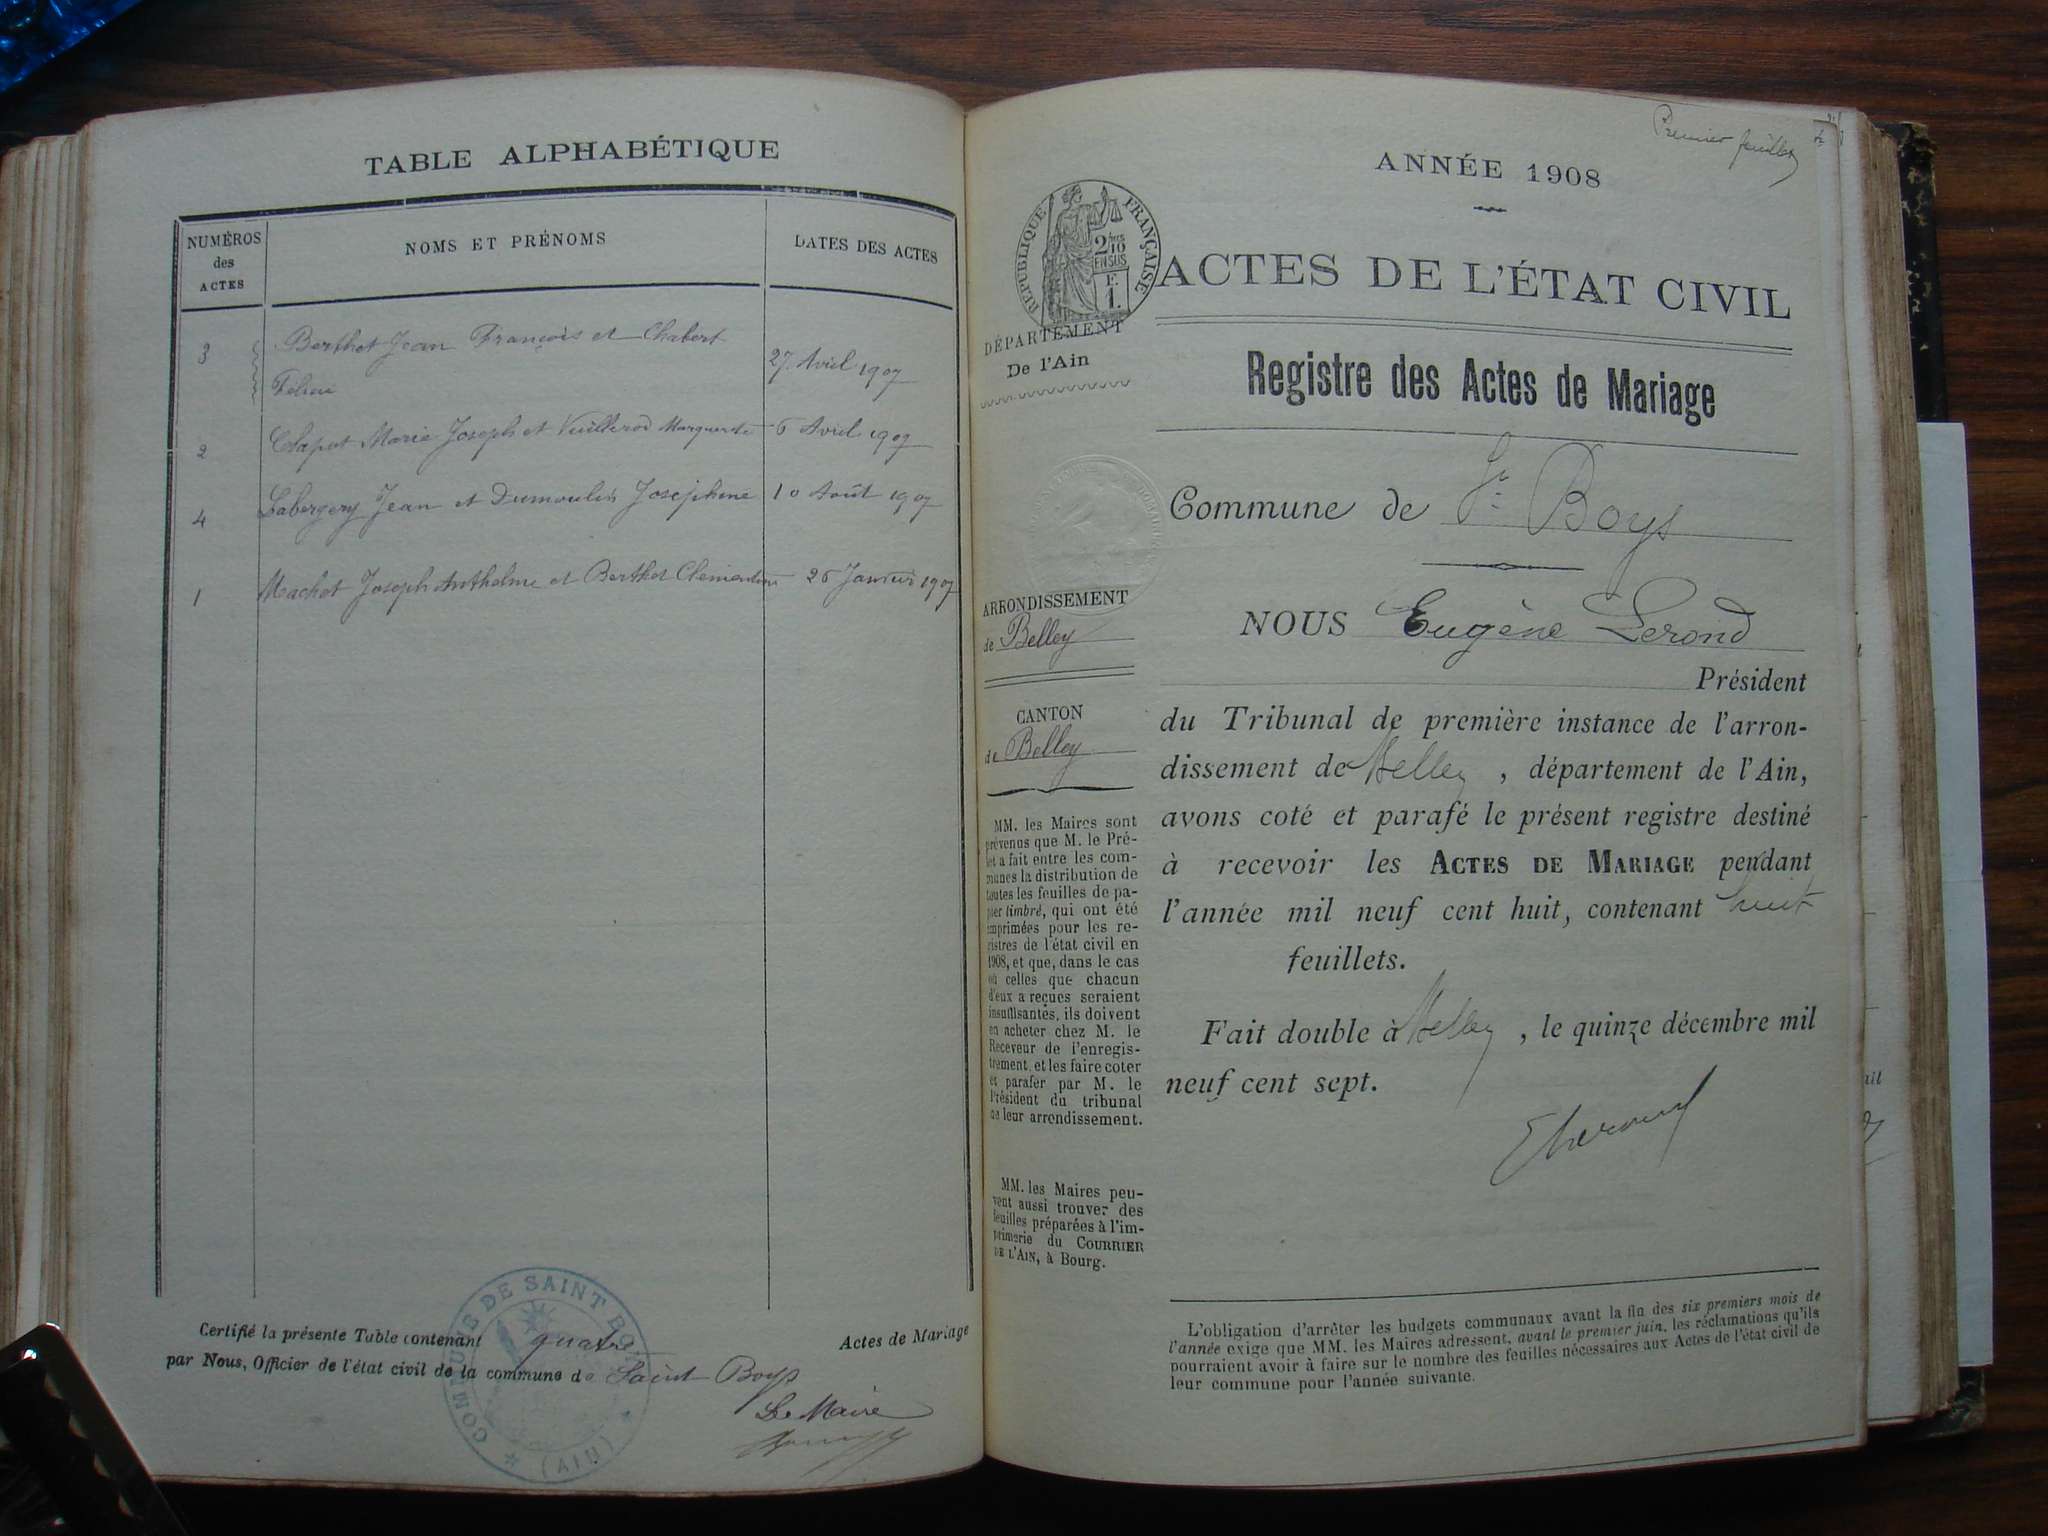 TABLE ALPHABÉTIQUE
NUMÉROS
des
ACTES
NOMS ET PRÉNOMS
DATES DES ACTES
3
Berthet Jean François et Chabert
27 Avril 1907
2
Chaput Marie Joseph et Marguerite
6 Avril 1907
4
Labergery Jean et Dumoulin Joséphine
10 Août 1907
1
Machet Joseph Anthelme et Berthet Clémentine
26 Janvier 1907
Certifié la présente Table contenant quatre Actes de Mariage
par Nous, Officier de l'état civil de la commune de Saint Boys
Le Maire
COMMUNE DE SAINT BOYS
(AIN)
Premier feuillet
ANNÉE 1908
RÉPUBLIQUE FRANÇAISE
2/10
EN SUS
F.
1.
ACTES DE L'ÉTAT CIVIL
DÉPARTEMENT
De l'Ain
Registre des Actes de Mariage
Commune de St Boys
ARRONDISSEMENT
de Belley
CANTON
de Belley
MM. les Maires sont
prévenus que M. le Pré-
fet a fait entre les com-
munes la distribution de
toutes les feuilles de pa-
pier timbré, qui ont été
imprimées pour les re-
gistres de l'état civil en
1908, et que, dans le cas
où celles que chacun
d'eux a reçues seraient
insuffisantes, ils doivent
en acheter chez M. le
Receveur de l'enregis-
trement, et les faire coter
et parafer par M. le
Président du tribunal
de leur arrondissement.
MM. les Maires peu-
vent aussi trouver des
feuilles préparées à l'im-
primerie du COURRIER
DE L'AIN, à Bourg.
NOUS Eugène Lerond
Président
du Tribunal de première instance de l'arron-
dissement de Belley, département de l'Ain,
avons coté et parafé le présent registre destiné
à recevoir les ACTES DE MARIAGE pendant
l'année mil neuf cent huit, contenant huit
feuillets.
Fait double à Belley, le quinze décembre mil
neuf cent sept.
L'obligation d'arrêter les budgets communaux avant la fin des six premiers mois de
l'année exige que MM. les Maires adressent, avant le premier juin, les réclamations qu'ils
pourraient avoir à faire sur le nombre des feuilles nécessaires aux Actes de l'état civil de
leur commune pour l'année suivante.